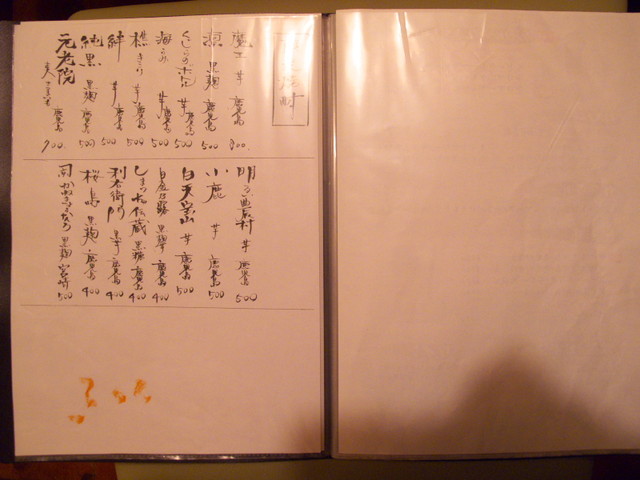 焼酎
魔王 芋 鹿児島 800
黒麹 鹿児島 500
くじらのボトル 芋 鹿児島 500
海 芋 鹿児島 500
芋 鹿児島 500
絆 芋 鹿児島 500
純黒 黒麹 鹿児島 500
元老院 鹿児島 700
明るい農村 芋 鹿児島 500
小鹿 芋 鹿児島 500
白天宝山 芋 鹿児島 500
白金乃露 黒麹 鹿児島 400
しまっちゅ伝蔵 黒糖 鹿児島 400
利右衛門 黒 芋 鹿児島 400
桜島 黒麹 鹿児島 400
黒麹 宮崎 500